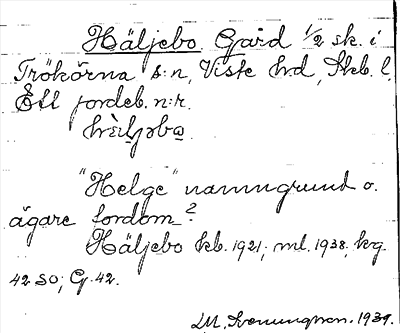 Häljebo Gård 1/2 sk. i
Trökörna s:n, Viste hd, Skb. l.
Ett jordeb. n:r.
"Helge" namngrund o.
ägare fordom?
Häljebo kb. 1921; ml. 1938; krg.
42 SO; G. 42.
1939.